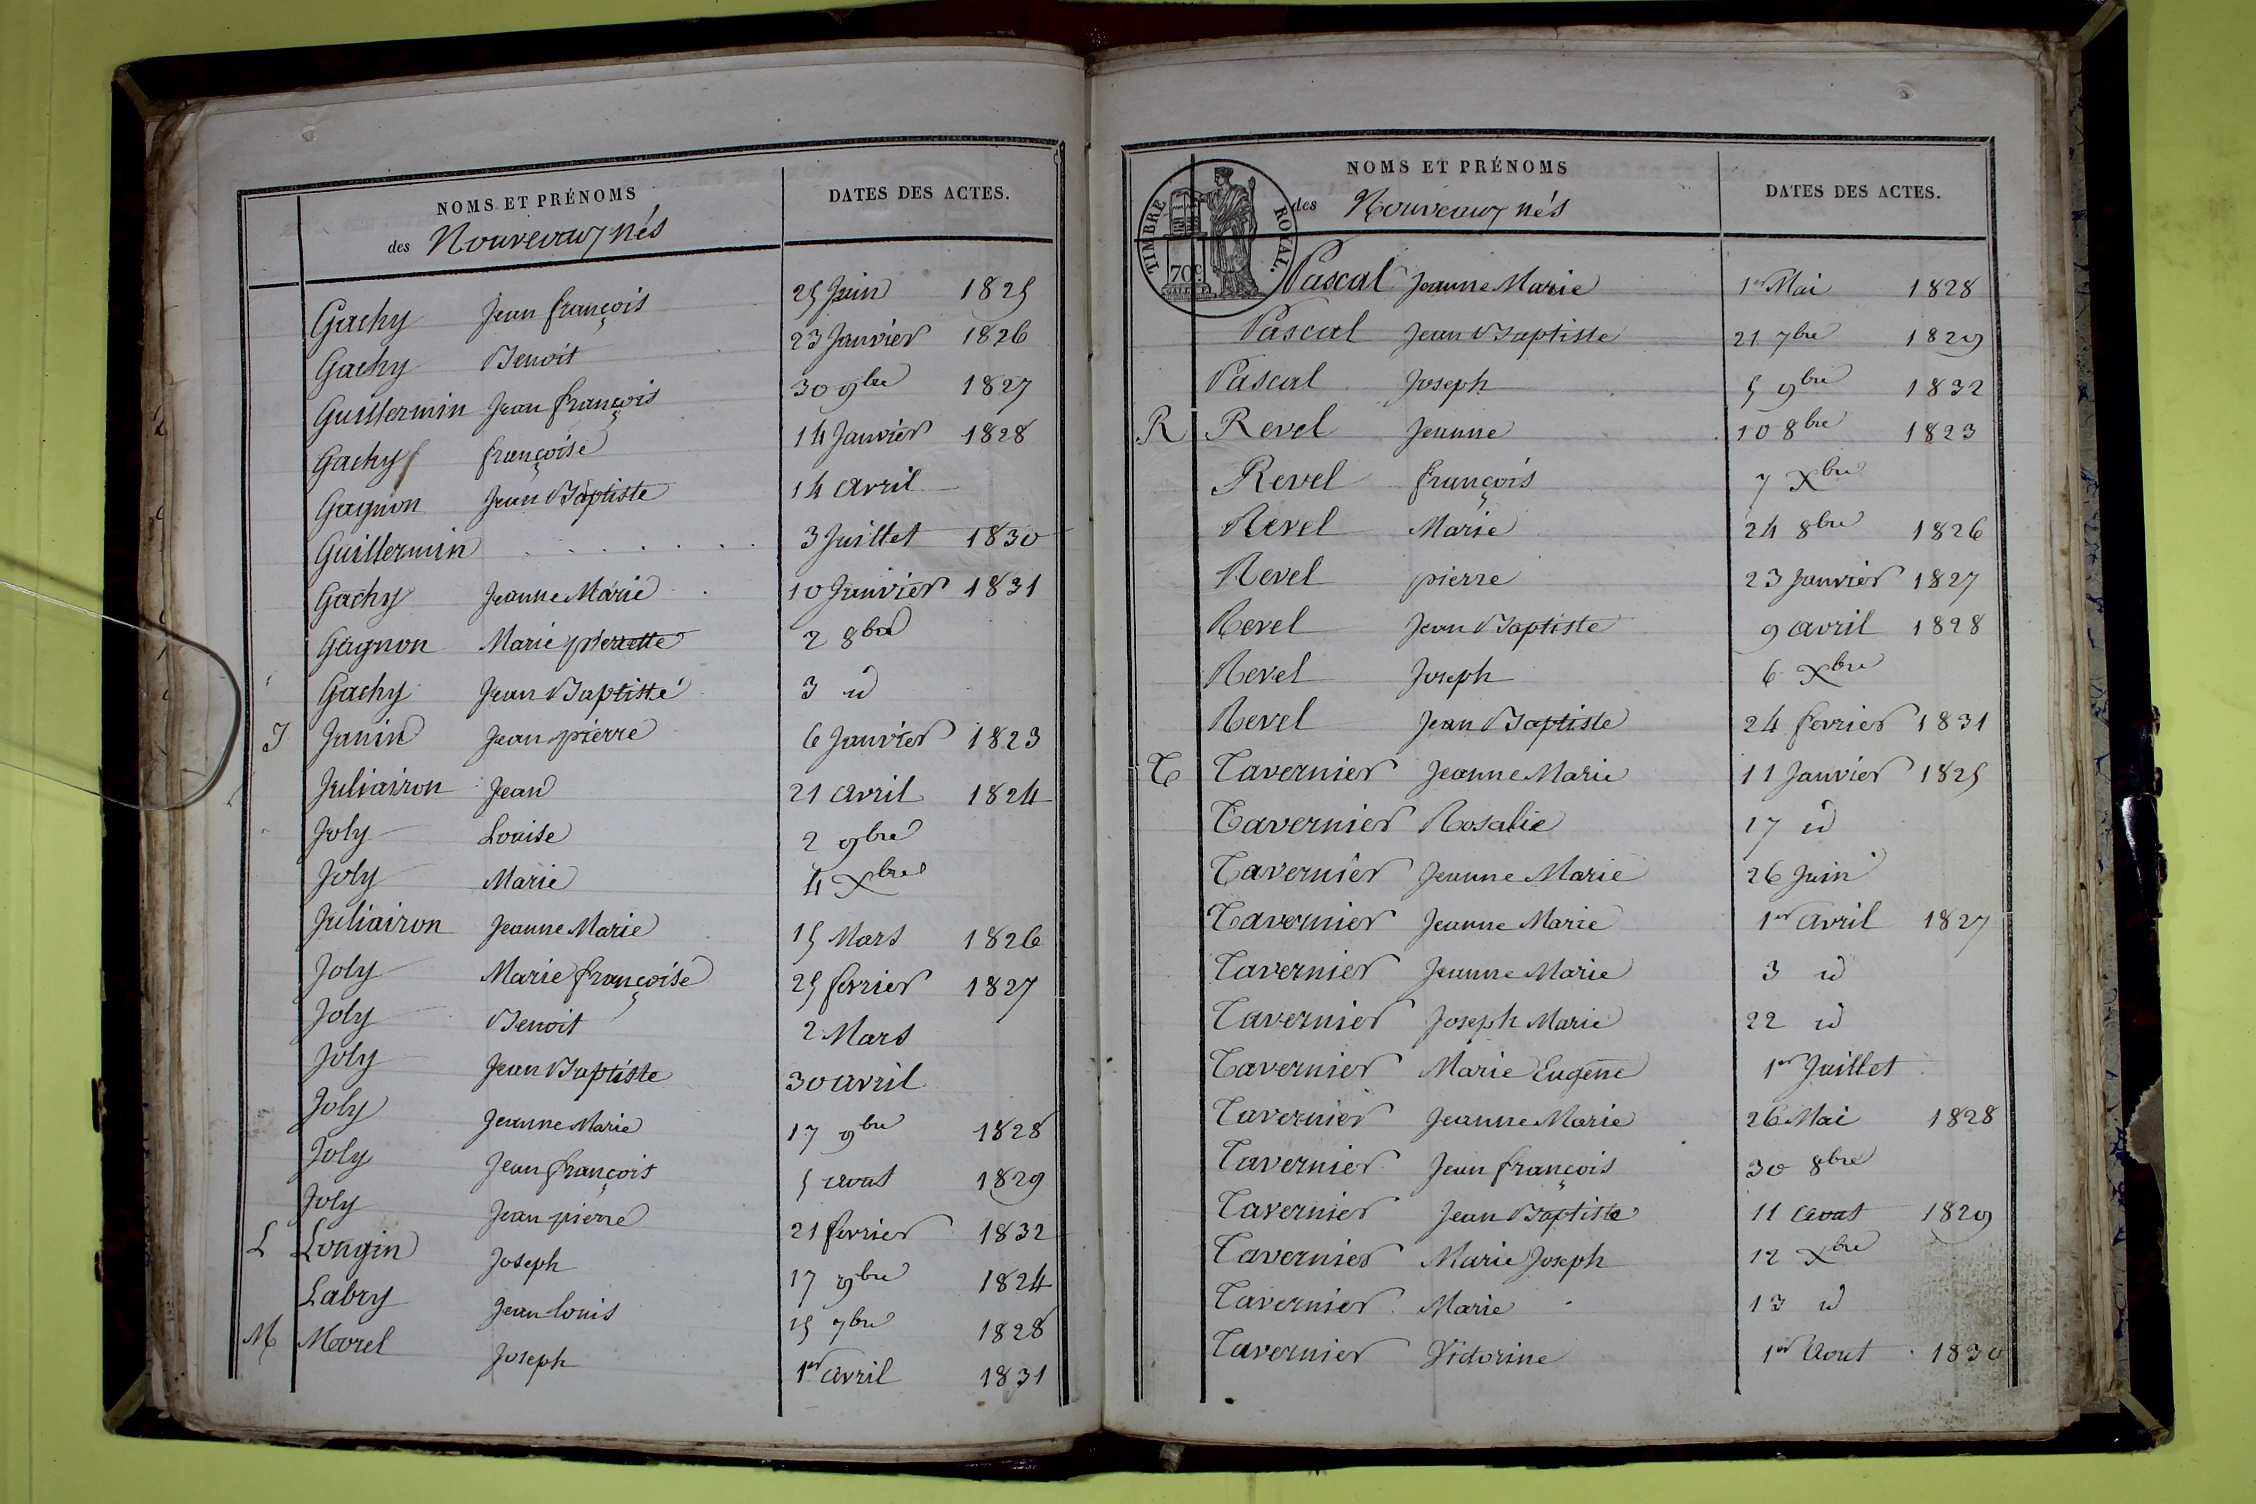 NOMS ET PRÉNOMS
des Nouveaux nés
DATES DES ACTES.
Gachy Jean françois 25 Juin 1825
Gachy Benoit 23 Janvier 1826
Guillermin Jean françois 30 9bre 1827
Gachy françoise 14 Janvier 1828
Gagnon Jean Baptiste 14 avril
Guillermin . . . . . . . 3 Juillet 1830
Gachy Jeanne Marie 10 Janvier 1831
Gagnon Marie pierrette 2 8bre
Gachy Jean Baptiste 3 id
J Janin Jean pierre 6 Janvier 1823
Juliairon Jean 21 avril 1824
Joly Louise 2 9bre
Joly Marie 4 Xbre
Juliairon Jeanne Marie 15 Mars 1826
Joly Marie françoise 25 fevrier 1827
Joly Benoit 2 Mars
Joly Jean Baptiste 30 avril
Joly Jeanne Marie 17 9bre 1828
Joly Jean françois 5 aout 1829
Joly Jean pierre 21 fevrier 1832
L Longin Joseph 17 9bre 1824
Labry Jean Louis 15 7bre 1828
M Morel Joseph 1er avril 1831
NOMS ET PRÉNOMS
des Nouveaux nés
DATES DES ACTES.
TIMBRE ROYAL.
70c
Pascal Jeanne Marie 1er Mai 1828
Pascal Jean Baptiste 21 7bre 1829
Pascal Joseph 5 9bre 1832
R Revel Jeanne 10 8bre 1823
Revel françois 7 Xbre
Revel Marie 24 8bre 1826
Revel pierre 23 Janvier 1827
Revel Jean Baptiste 9 avril 1828
Revel Joseph 6 Xbre
Revel Jean Baptiste 24 fevrier 1831
T Tavernier Jeanne Marie 11 Janvier 1825
Tavernier Rosalie 17 id
Tavernier Jeanne Marie 26 Juin
Tavernier Jeanne Marie 1er avril 1827
Tavernier Jeanne Marie 3 id
Tavernier Joseph Marie 22 id
Tavernier Marie Eugene 1er Juillet
Tavernier Jeanne Marie 26 Mai 1828
Tavernier Jean françois 30 8bre
Tavernier Jean Baptiste 11 aout 1829
Tavernier Marie Joseph 12 Xbre
Tavernier Marie 13 id
Tavernier Victorine 1er Aout 1830